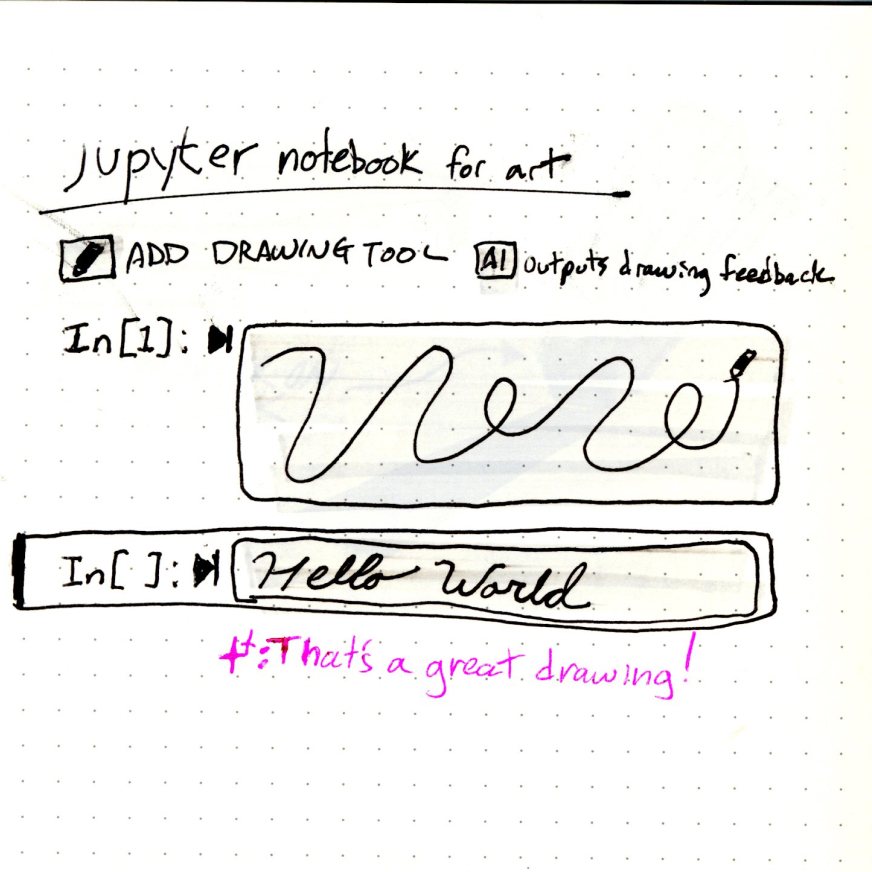 Jupyter notebook for art
ADD DRAWING TOOL AI outputs drawing feedback
In[1]:
In[ ]: Hello World
+:That's a great drawing!